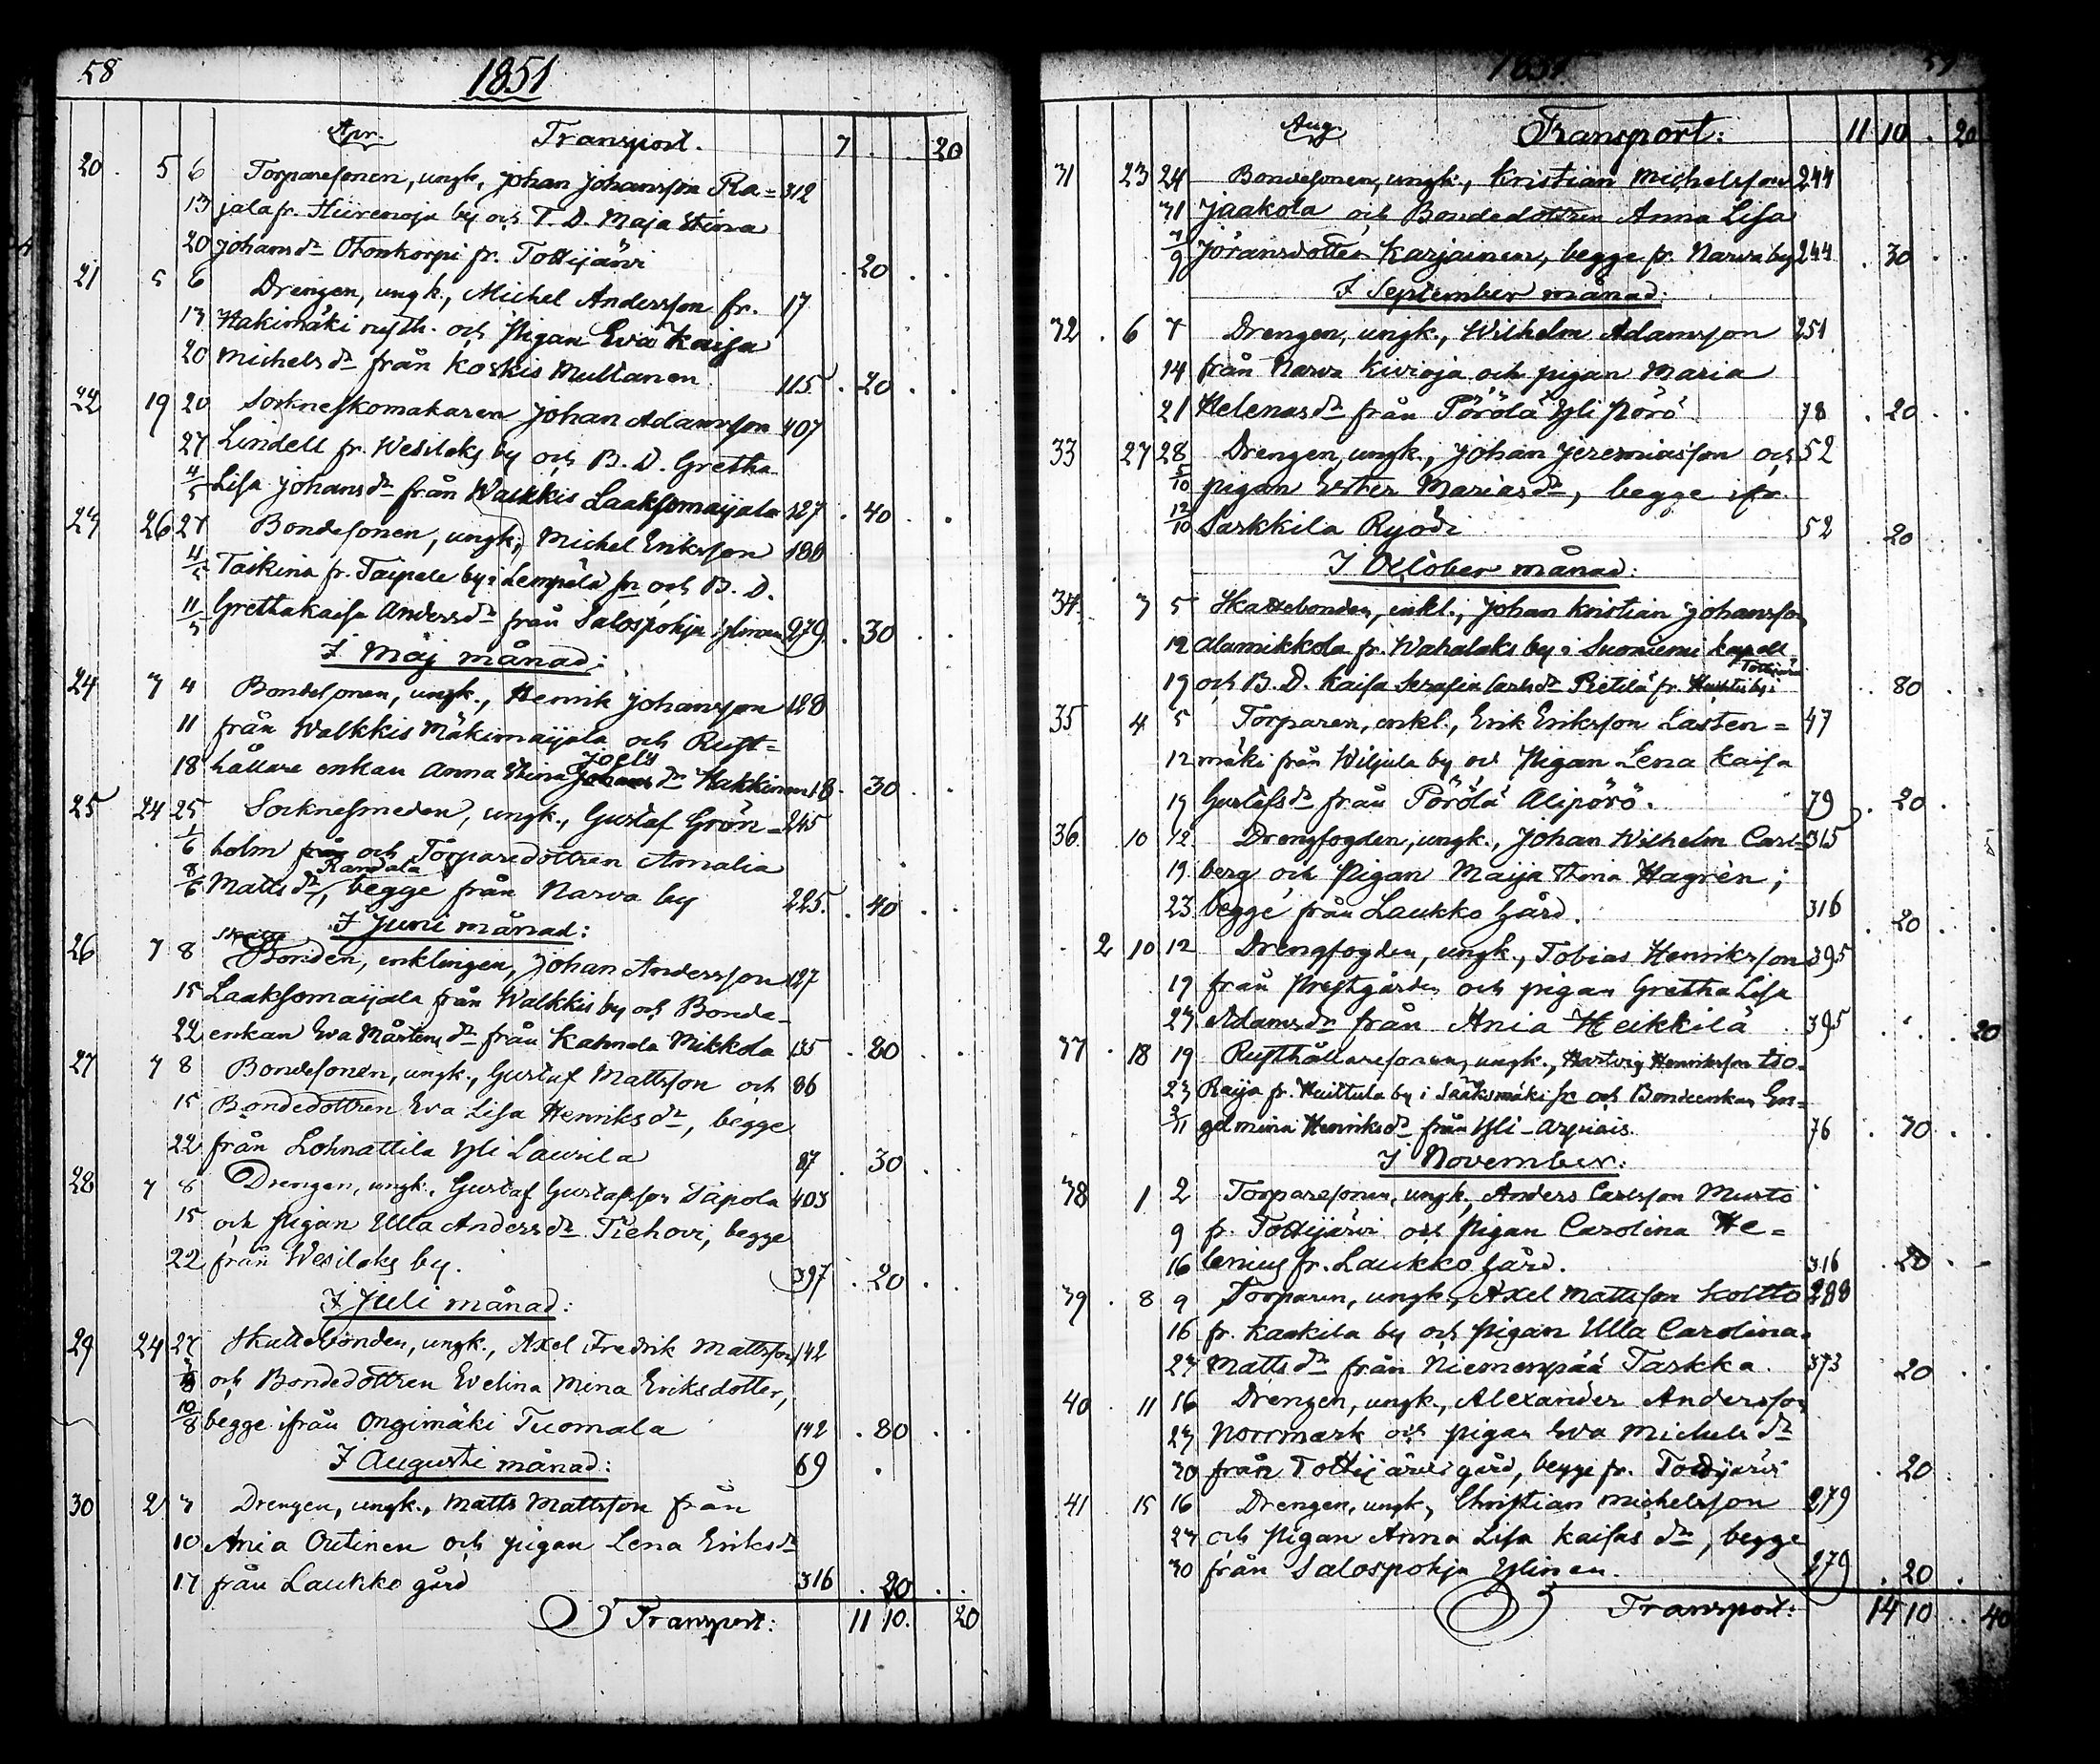 58 1851
Apr. Transport. 7 . . 20
20. 5 6 Torparesonen, ungk, Johan Johansson Ra= 312
13 jala fr. Hiirenoja by och T. D. Maja Stina
20 Johansdr Otonkorpi fr. Tottijärvi . 20 . .
21 5 6 Drengen, ungk., Michel Andersson fr. 17
13 Hakimäki rusth. och Pigan Eva Kaisa
20 Michelsdr från Koskis Multanen 115 . 20 . .
22 19 20 Sockneskomakaren Johan Adamsson 407
27 Lindell fr. Wesilaks by och B. D. Gretha
4/5 Lisa Johansdr från Walkkis Laaksomaijala 127 . 40 . .
23 26 27 Bondesonen, ungk, Michel Eriksson 188
4/5 Taskina fr. Taipale by i Lempälä sn och B. D.
11/5 Gretha Kaisa Andersdr från Salospohja Ylinen 279 . 30 . .
I Maj månad:
24 3 4 Bondesonen, ungk., Henrik Johansson 128
11 från Walkkis Mäkimaijala och Rust=
Joels
18 hållare enkan Anna Stina Johans dr Hakkinen 18 . 30 . .
25 24 25 Socknesmeden, ungk., Gustaf Grön- 245
1/6 holm från och Torparedottren Amalia
Randala
8/6 Matts dr, begge från Narva by 225. . 40 . .
I Juni månad:
Skatte
26 7 8 Bonden, enklingen, Johan Andersson 127
15 Laaksomaijala från Walkkis by och Bonde-
22 enkan Eva Mårtens dr från Kahnala Mikkola 135 . 80 . .
27 7 8 Bondesonen, ungk., Gustaf Mattsson och 86
15 Bondedottren Eva Lisa Henriksdr, begge
22 från Lohnattila Yli Laurila 87 . 30 . .
28 7 8 Drengen, ungk., Gustaf Gustafsson Täpola 403
15 och Pigan Ulla Andersdr Tiehovi, begge
22 från Wesilaks by. 397 . 20 . .
I Juli månad:
29 24 27 Skattebonden, ungk., Axel Fredrik Mattsson 142
3/8 och Bondedottren Evelina Mina Eriksdotter,
10/8 begge ifrån Ongimäki Tuomala 142 . 80 . .
I Augusti månad: 69 .
30 2 3 Drengen, ungk., Matts Mattsson från
10 Ania Outinen och pigan Lena Eriksdr
17 från Laukko gård 316 . 20 . .
Transport: 11 10. 20
1851 59
Aug. Transport: 11 10 . 20
31 23 24 Bondesonen, ungk., Kristian Michelsson 244
31 Jaakola och Bondedottren Anna Lisa
7/9 Jöransdotter Karjainen, begge fr. Narva by 244 . 30 . .
I September månad:
32 . 6 7 Drengen, ungk., Wilhelm Adamsson 251
14 från Narva Kivioja och pigan Maria
21 Helenasdr från Pörölä Yli Pörö 78 . 20 . .
33 27 28 Drengen, ungk., Johan Jeremiasson och 52
5/10 pigan Ester Mariasdr, begge ifr.
12/10 Sarkkila Ryödi 52 . 20
I October månad:
34. 3 5 Skattebonden, enkl., Johan Kristian Johansson
12 Alamikkola fr. Wahalaks by i Suoniemi kapell
Tottijärvi
19 och B. D. Kaisa Serafia Carlsdr Pietilä fr. by i . . 80 . .
35 4 5 Torparen, enkl., Erik Eriksson Lasten= 47
12 mäki från Wiljula by och Pigan Lena Kaisa
19 Gustafsdr från Pörölä Alipörö. 79 . 20 .
36. 10 12. Drengfogden, ungk., Johan Wilhelm Carl= 315
19. berg och Pigan Maija Stina Hagrèn;
23. begge från Laukko gård. 316 . 20 . .
2 10 12 Drengfogden, ungk., Tobias Henriksson 395
19 från Prestgården och pigan Gretha Lisa
23 Adamsdr från Ania Heikkilä . 395 . . . 20
37 . 18 19 Rusthållaresonen, ungk., Hartvig Henriksson Iso-
23 Raija fr. Huittula by i Sääksmäki sn och Bondeenkan En=
2/11 gelmina Henriksdr från Yli-Arpiais. 76 . 30 . .
I November:
38 1 2 Torparesonen, ungk, Anders Carlsson Murto
9 fr. Tottijärvi och Pigan Carolina He=
16 lenius fr. Laukko gård. 316 . 20 . .
39 . 8 9 Torparen, ungk., Axel Mattsson Koltto 288
16 fr. Kaakila by och pigan Ulla Carolina
23 Matts dr från Niemenpää Tarkka. 373 20 .
40 . 11 16 Drengen, ungk., Alexander Andersson
23 Norrmark och pigan Eva Michels dr
30 från Tottijärvi gård, begge fr. Tottijärvi . 20 . .
41 . 15 16 Drengen, ungk, Christian Michelsson 279
23 och Pigan Anna Lisa Kaisas dr, begge
30 från Salospohja Ylinen. 279 . 20 .
Transport: 14 10 . 40